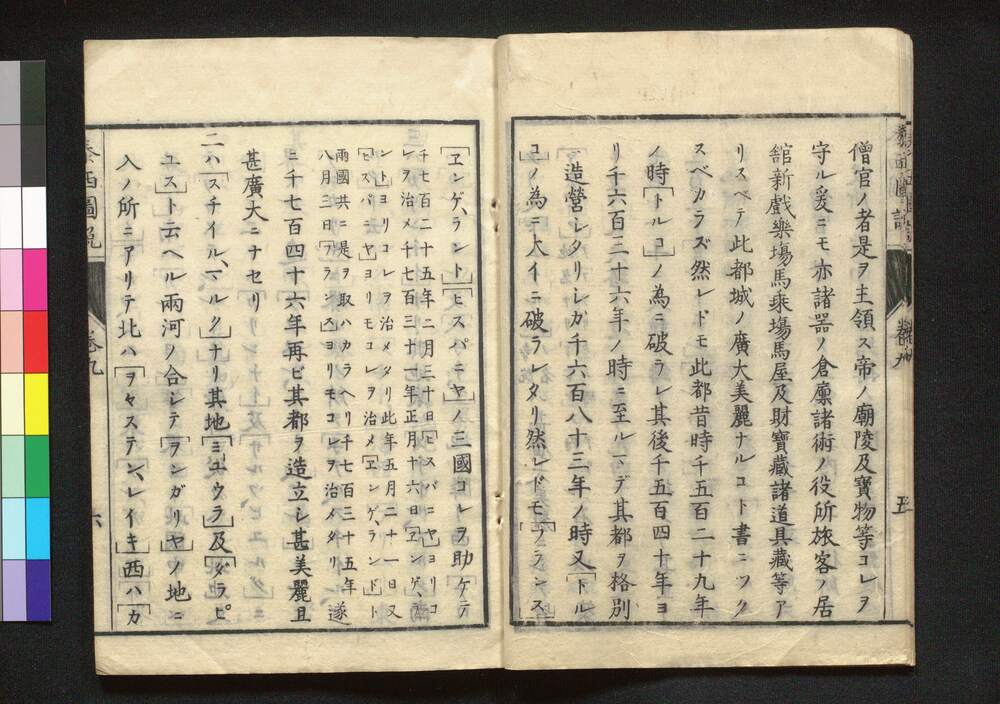 僧官ノ者是ヲ主領ス帝ノ廟陵及寳物等コレヲ
守ル爰ニモ亦諸器ノ倉廩諸術ノ役所旅客ノ居
舘新戲樂塲馬乘塲馬屋及財寶藏諸道具藏等ア
リスベテ此都城ノ廣大美麗ナルコト書ニツク
スベカラズ然レドモ此都昔時千五百二十九年
ノ時「トルコ」ノ為ニ破ラレ其後千五百四十年ヨ
リ千六百二十六年ノ時ニ至ルマデ其都ヲ格別
ニ造營シタリシガ千六百八十三年ノ時又「トル
コ」ノ為ニ大イニ破ラレタリ然レドモ「フランス」
五
「ヱンゲラント」「ヒスパニヤ」ノ三國コレヲ助ケテ
千七百二十五年二月三十日「ヒスパニヤ」ヨリコ
レヲ治メ千七百三十一年正月十六日「ヱンゲラ
ント」ヨリコレヲ治メタリ此年五月二十一日又
「ヒスパニヤ」ヨリモコレヲ治メ「ヱンゲランド」ト
兩國共ニ是ヲ取ハカラヘリ千七百三十五年
八月三日「フランス」ヨリモコレヲ治メタリ遂
ニ千七百四十六年再ビ其都ヲ造立シ甚美麗且
甚廣大ニナセリ
二ハ「スチイルマルク」ナリ其地「ミュウラ」及「ダラピ
ユス」ト云ヘル兩河ノ合シテ「ヲンガリヤ」ノ地ニ
入ノ所ニアリテ北ハ「ヲヤステンレイキ」西ハ「カ
泰西圖説
卷九
六